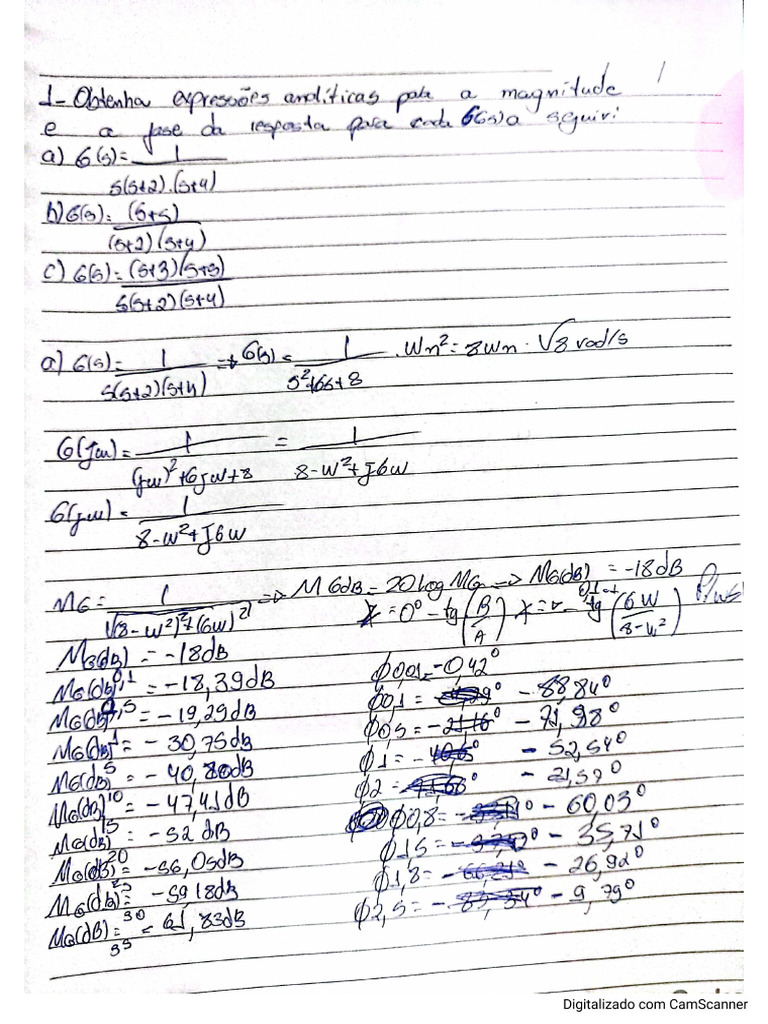 1- Obtenha expressões analíticas para a magnitude
e a fase da resposta para cada G(s) a seguir:
a) G(s)= 1
s(s+2).(s+4)
b) G(s): (s+5)
(s+2)(s+4)
c) G(s): (s+3)(s+5)
s(s+2)(s+4)
a) G(s)= 1 => G(s) = 1 . Wn² = 8 Wn = √8 rad/s
s(s+2)(s+4) s²+6s+8
G(jw) = 1 = 1
(jw)²+6jw+8 8-w²+j6w
G(jw) = 1
8-w²+j6w
MG = 1 => MGdB = 20 log MG => MG(dB) = -18dB
√(8-w²)²+(6w)² = 0° - tg (B/A) tg (6W/8-w²)
MG(dB) = -18dB
MG(dB) = -18,39dB ϕ0,01=-0,42°
MG(dB) = -19,29dB ϕ0,1 = - 88,84°
MG(dB) = -30,75dB ϕ0,5 = - 71,98°
MG(dB) 5 = -40,80dB ϕ1 = - 52,54°
MG(dB) 10 = -47,41dB ϕ2 = - 21,57°
MG(dB) 15 = -52 dB ϕ0,8 = - 60,03°
MG(dB) 20 = -56,05dB ϕ1,5 = - 35,71°
MG(dB) = -59,18dB ϕ1,8 = - 26,92°
MG(dB) = 30 61,83dB ϕ2,5 = - 9,79°
35
Digitalizado com CamScanner